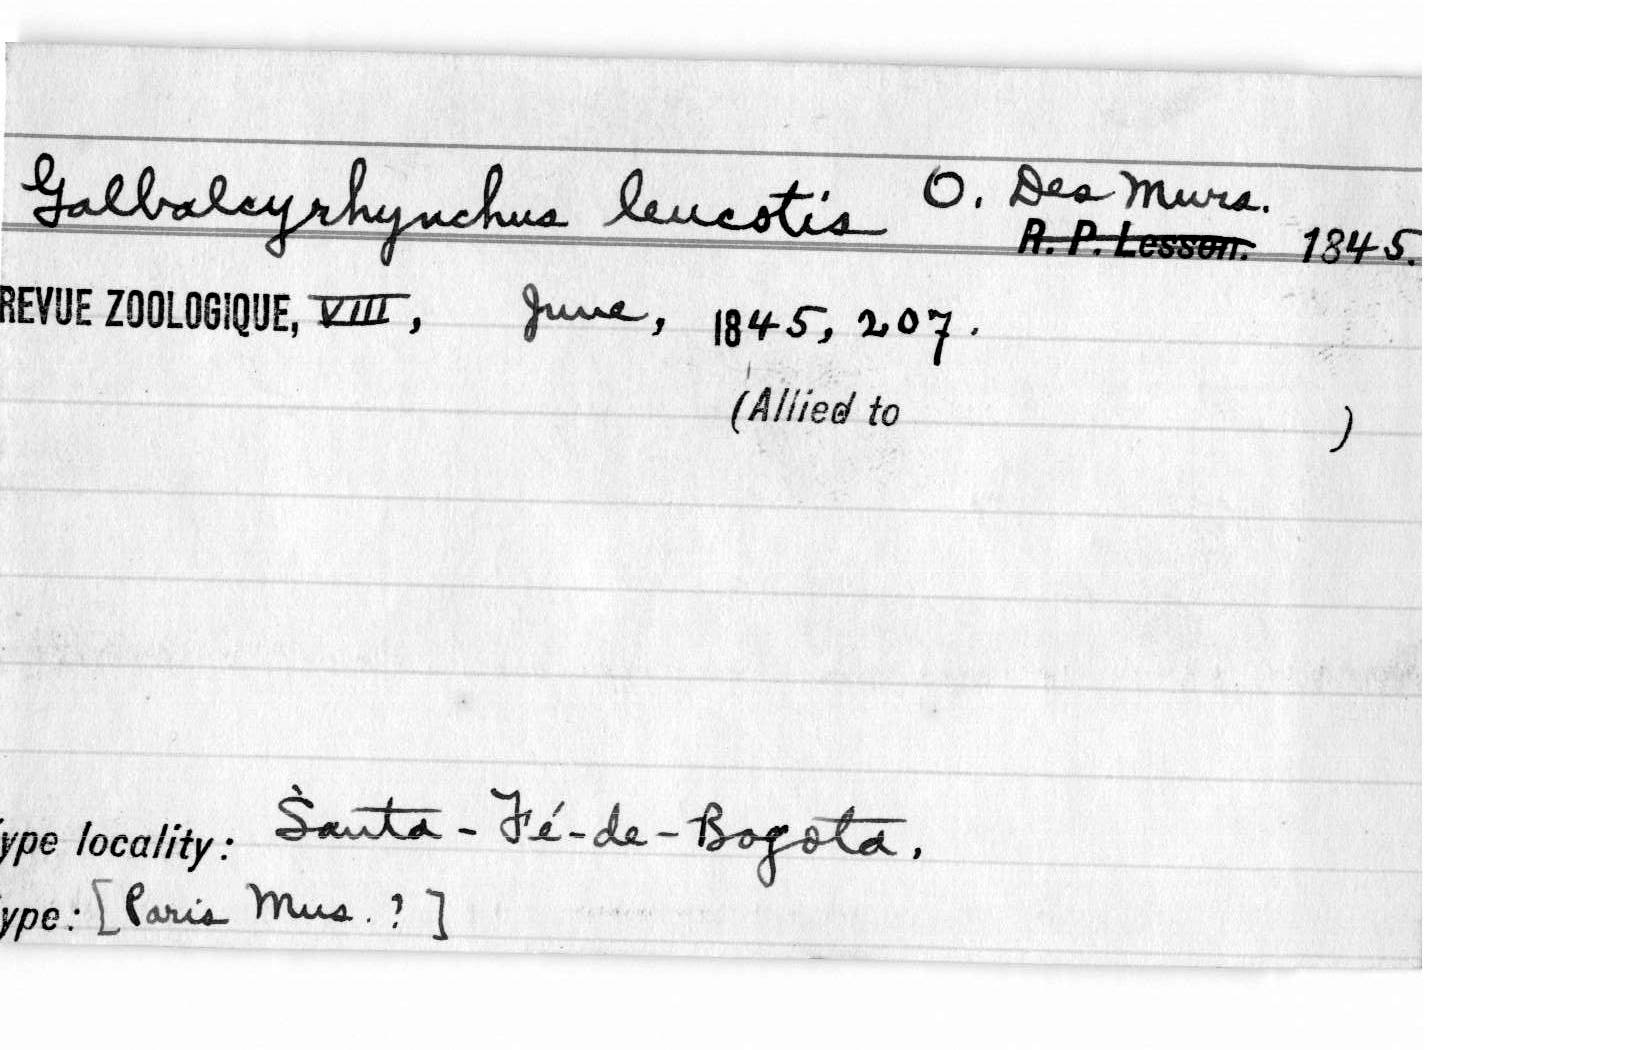 Galbalcyrhynchus leucotis O. Des Murs.
R. P. Lesson. 1845.
REVUE ZOOLOGIQUE, VIII, June, 1845, 207.
(Allied to )
ype locality: Santa-Fé-de-Bogota.
ype: [Paris Mus. ?]